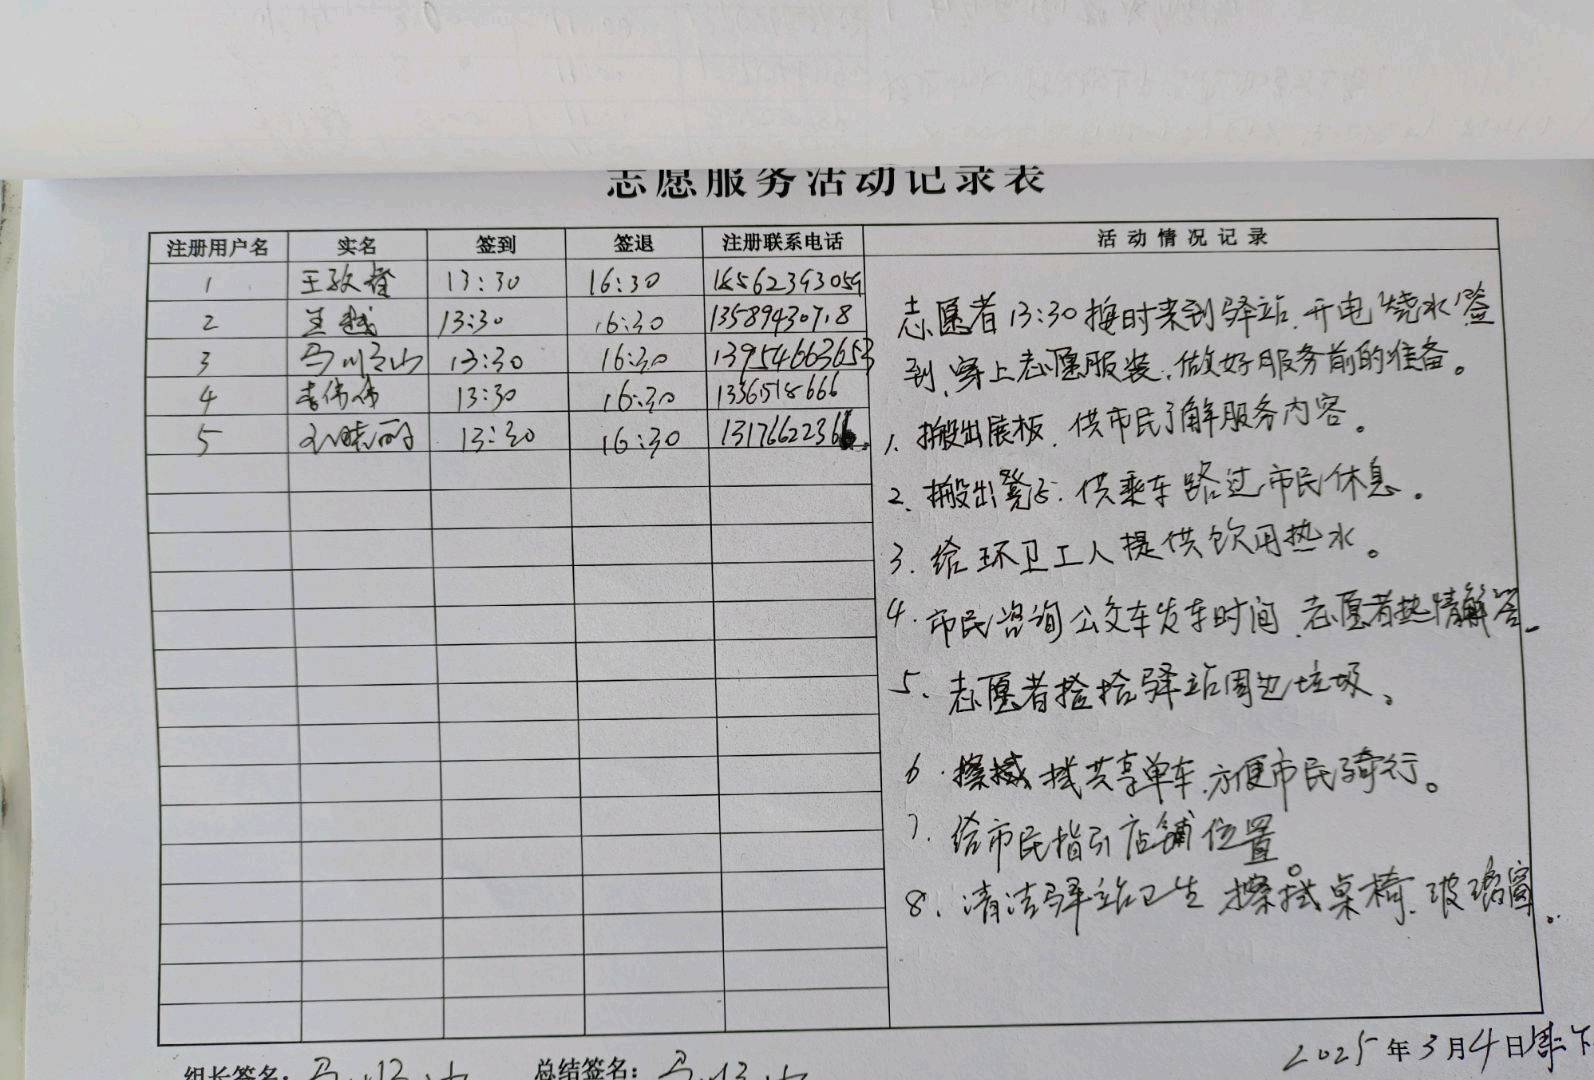 志愿服务活动记录表
注册用户名 实名 签到 签退 注册联系电话 活动情况记录
1 王 13:30 16:30 18562393059
2 13:30 16:30 13589430718
3 马 山 13:30 16:30 13954663653
4 李伟伟 13:30 16:30 1336518666
5 刘晓丽 13:30 16:30 1317662236
志愿者13:30按时来到驿站,开电烧水,签
到,穿上志愿服装,做好服务前的准备。
1、搬出展板,供市民了解服务内容。
2、搬出凳子,供乘车路过市民休息。
3.给环卫工人提供饮用热水。
4.市民咨询公交车发车时间,志愿者热情解答。
5、志愿者捡拾驿站周边垃圾。
6.擦拭共享单车,方便市民骑行。
7.给市民指引店铺位置。
8.清洁驿站卫生 擦拭桌椅,玻璃窗。
2025年3月4日 周二下
组长签名: 总结签名: